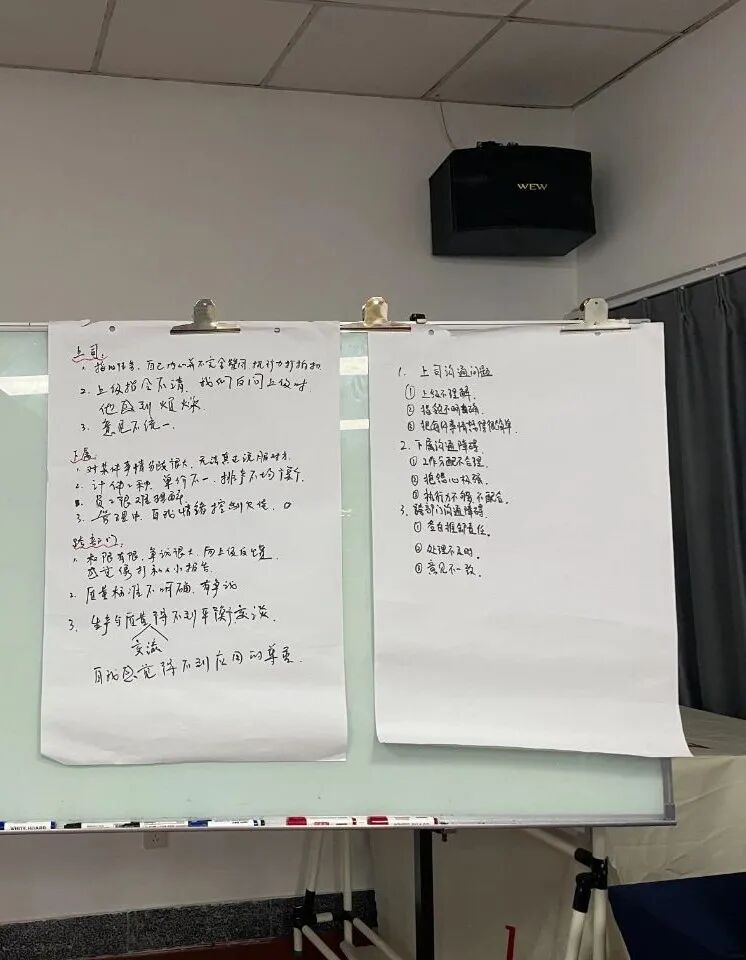 WEW
上司:
1. 指的任务, 自己内心并不完全赞同, 执行力打折扣
2. 上级指令不清, 我们反问上级时
他感到烦燥.
3. 意见不统一.
下属:
1. 对某件事情争议很大, 无法真正说服对方
2. 计件工种, 单价不一, 排产不均
员工很难理解.
3. 管理中, 自我情绪控制欠佳.
跨部门:
1. 权限有限, 争议很大, 向上级反
感觉像打小报告
2. 质量标准不明确, 有争议
3. 生产与质量得不到平衡交谈.
交流
自我感觉得不到应用的尊重.
1. 上司沟通问题
① 上级不理解.
② 指令不明确.
③ 把每件事情想得很简单.
2. 下属沟通障碍
① 工作分配不合理.
② 抱怨心极强.
③ 执行力不够 不配合.
3. 跨部门沟通障碍
① 互相推卸责任.
② 处理不及时.
③ 意见不一致.
WHITE BOARD